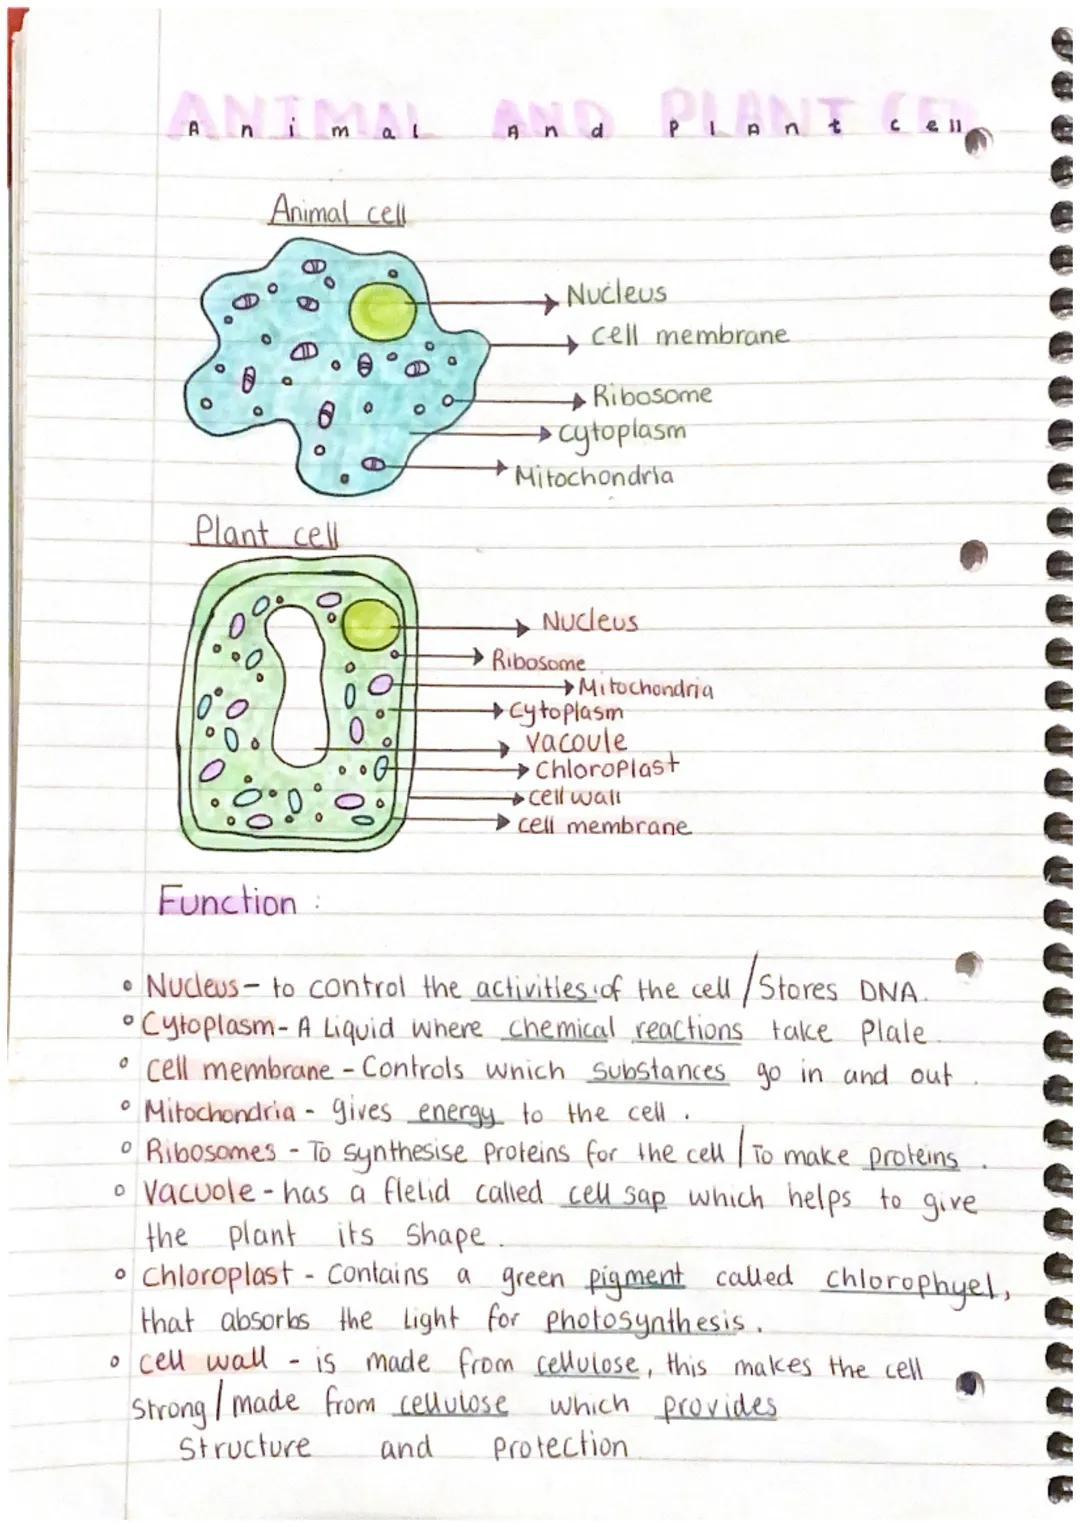 ANIMAL AND PLANT CELL
Animal And Plant cell
Animal cell
Nucleus
cell membrane
Ribosome
cytoplasm
Mitochondria
Plant cell
Nucleus
Ribosome
Mitochondria
Cytoplasm
Vacoule
Chloroplast
cell wall
cell membrane
Function :
Nucleus - to control the activities of the cell / Stores DNA.
Cytoplasm - A Liquid where chemical reactions take Plale.
cell membrane - Controls which substances go in and out.
Mitochondria - gives energy to the cell.
Ribosomes - To synthesise proteins for the cell / To make proteins.
Vacuole - has a flelid called cell sap which helps to give
the plant its shape.
Chloroplast - Contains a green pigment called chlorophyel,
that absorbs the Light for photosynthesis.
cell wall - is made from cellulose, this makes the cell
strong / made from cellulose which provides
structure and Protection